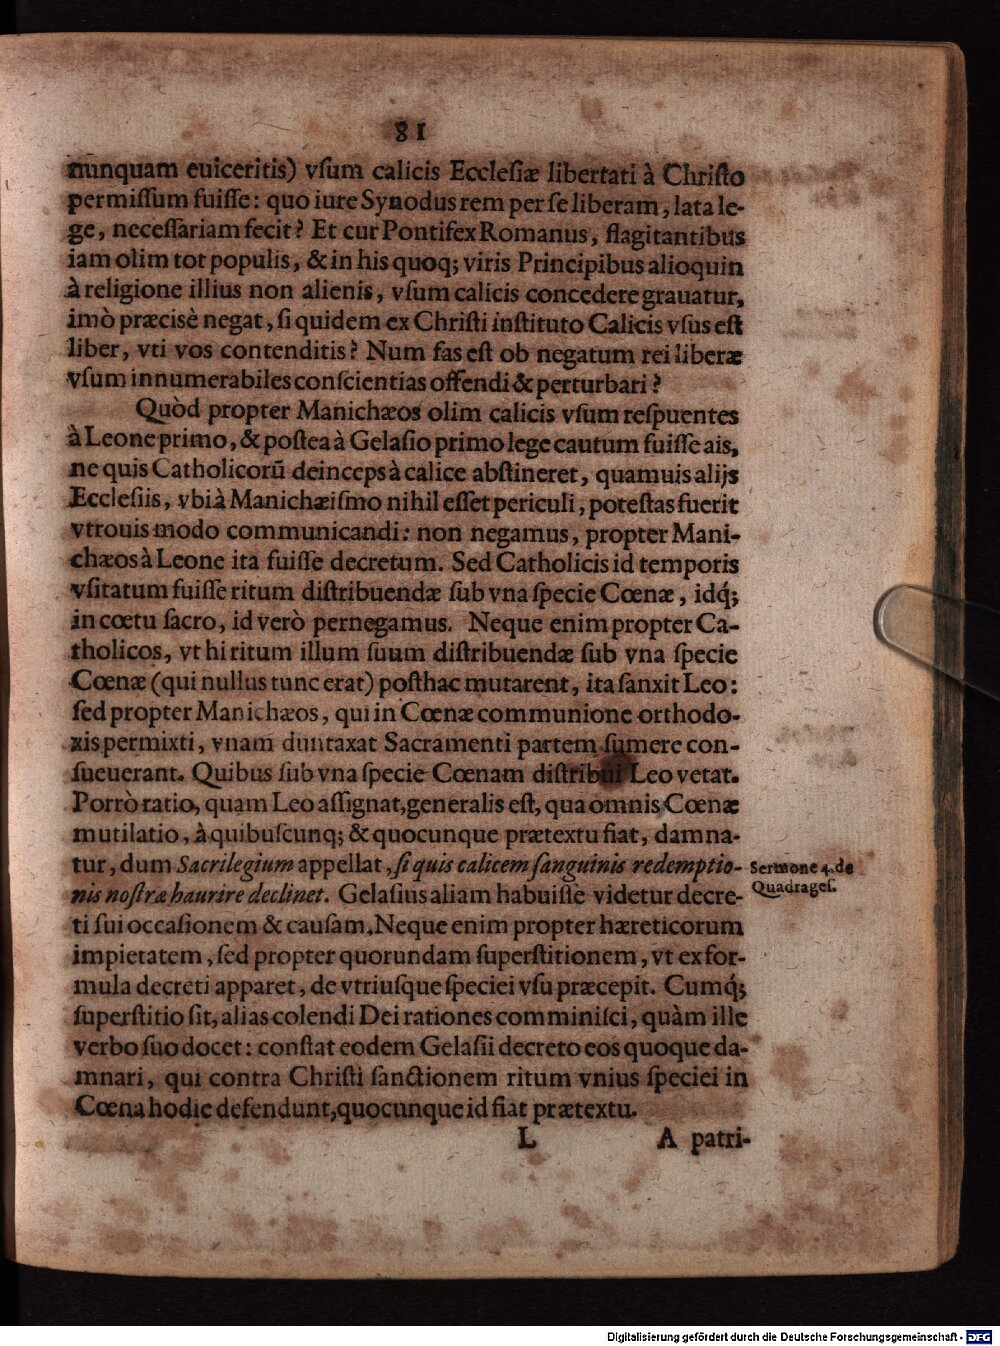 81
nunquam euiceritis) vſum calicis Eccleſiæ libertati à Chriſto
permiſſum fuiſſe: quo iure Synodus rem per ſe liberam, lata le-
ge, neceſſariam fecit? Et cur Pontifex Romanus, flagitantibus
iam olim tot populis, & in his quoq; viris Principibus alioquin
à religione illius non alienis, vſum calicis concedere grauatur,
imò præcisè negat, ſi quidem ex Chriſti inſtituto Calicis vſus eſt
liber, vti vos contenditis? Num fas eſt ob negatum rei liberæ
vſum innumerabiles conſcientias offendi & perturbari?
Quòd propter Manichæos olim calicis vſum reſpuentes
à Leone primo, & poſtea à Gelaſio primo lege cautum fuiſſe ais,
ne quis Catholicorũ deinceps à calice abſtineret, quamuis alijs
Eccleſiis, vbi à Manichæiſmo nihil eſſet periculi, poteſtas fuerit
vtrouis modo communicandi: non negamus, propter Mani-
chæos à Leone ita fuiſſe decretum. Sed Catholicis id temporis
vſitatum fuiſſe ritum diſtribuendæ ſub vna ſpecie Cœnæ, idq́;
in cœtu ſacro, id verò pernegamus. Neque enim propter Ca-
tholicos, vt hi ritum illum ſuum diſtribuendæ ſub vna ſpecie
Cœnæ (qui nullus tunc erat) poſthac mutarent, ita ſanxit Leo:
ſed propter Manichæos, qui in Cœnæ communione orthodo-
xis permixti, vnam duntaxat Sacramenti partem ſumere con-
ſueuerant. Quibus ſub vna ſpecie Cœnam diſtribui Leo vetat.
Porrò ratio, quam Leo aſſignat, generalis eſt, qua omnis Cœnæ
mutilatio, à quibuſcunq; & quocunque prætextu fiat, damna-
tur, dum Sacrilegium appellat, ſi quis calicem ſanguinis redemptio-
nis noſtræ haurire declinet. Gelaſius aliam habuiſſe videtur decre-
ti ſui occaſionem & cauſam. Neque enim propter hæreticorum
impietatem, ſed propter quorundam ſuperſtitionem, vt ex for-
mula decreti apparet, de vtriuſque ſpeciei vſu præcepit. Cumq́;
ſuperſtitio ſit, alias colendi Dei rationes comminiſci, quàm ille
verbo ſuo docet: conſtat eodem Gelaſii decreto eos quoque da-
mnari, qui contra Chriſti ſanctionem ritum vnius ſpeciei in
Cœna hodie defendunt, quocunque id fiat prætextu.
L A patri-
Sermone 4. de
Quadrageſ.
Digitalisierung gefördert durch die Deutsche Forschungsgemeinschaft - DFG